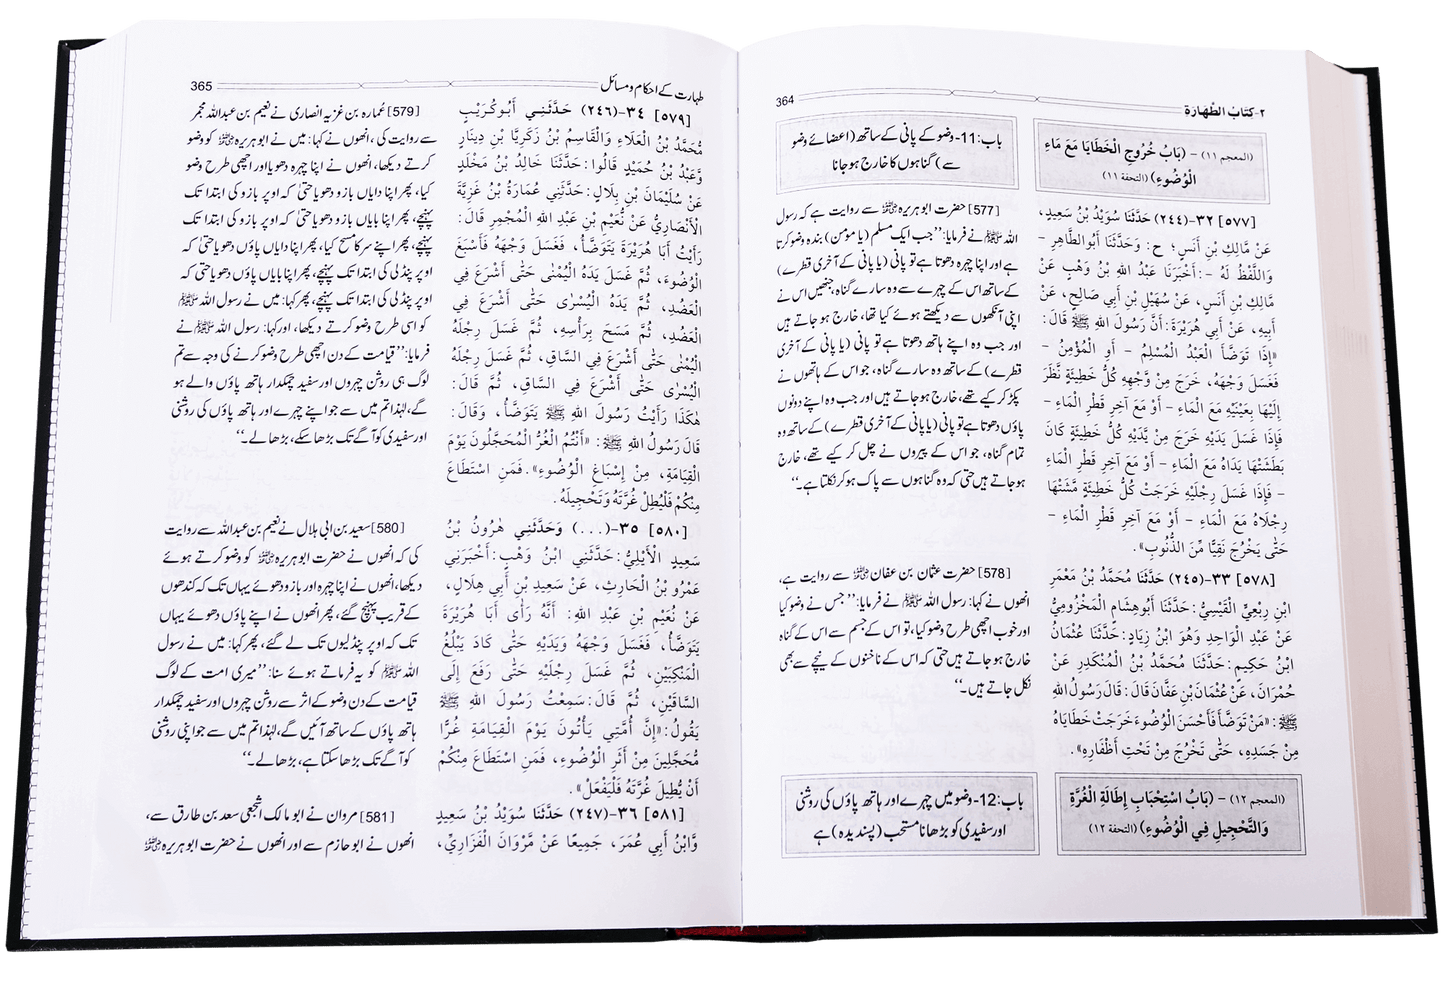 ٢-كتاب الطهارة
364
(المعجم ١١) - (بَابُ خُرُوجِ الْخَطَايَا مَعَ مَاءِ
الْوُضُوءِ) (التحفة ١١)
[٥٧٧] ٣٢-(٢٤٤) حَدَّثَنَا سُوَيْدُ بْنُ سَعِيدٍ،
عَنْ مَالِكِ بْنِ أَنَسٍ؛ ح: وَحَدَّثَنَا أَبُو الطَّاهِرِ -
وَاللَّفْظُ لَهُ -: أَخْبَرَنَا عَبْدُ اللهِ بْنُ وَهْبٍ عَنْ
مَّالِكِ بْنِ أَنَسٍ، عَنْ سُهَيْلِ بْنِ أَبِي صَالِحٍ، عَنْ
أَبِيهِ، عَنْ أَبِي هُرَيْرَةَ: أَنَّ رَسُولَ اللهِ ﷺ قَالَ:
«إِذَا تَوَضَّأَ الْعَبْدُ الْمُسْلِمُ - أَوِ الْمُؤْمِنُ -
فَغَسَلَ وَجْهَهُ، خَرَجَ مِنْ وَّجْهِهِ كُلُّ خَطِيئَةٍ نَّظَرَ
إِلَيْهَا بِعَيْنَيْهِ مَعَ الْمَاءِ - أَوْ مَعَ آخِرِ قَطْرِ الْمَاءِ -
فَإِذَا غَسَلَ يَدَيْهِ خَرَجَ مِنْ يَّدَيْهِ كُلُّ خَطِيئَةٍ كَانَ
بَطَشَتْهَا يَدَاهُ مَعَ الْمَاءِ - أَوْ مَعَ آخِرِ قَطْرِ الْمَاءِ
- فَإِذَا غَسَلَ رِجْلَيْهِ خَرَجَتْ كُلُّ خَطِيئَةٍ مَّشَتْهَا
رِجْلَاهُ مَعَ الْمَاءِ - أَوْ مَعَ آخِرِ قَطْرِ الْمَاءِ -
حَتَّى يَخْرُجَ نَقِيًّا مِّنَ الذُّنُوبِ».
[٥٧٨] ٣٣-(٢٤٥) حَدَّثَنَا مُحَمَّدُ بْنُ مَعْمَرِ
ابْنِ رِبْعِيٍّ الْقَيْسِيُّ: حَدَّثَنَا أَبُو هِشَامٍ الْمَخْزُومِيُّ
عَنْ عَبْدِ الْوَاحِدِ وَهُوَ ابْنُ زِيَادٍ: حَدَّثَنَا عُثْمَانُ
ابْنُ حَكِيمٍ: حَدَّثَنَا مُحَمَّدُ بْنُ الْمُنْكَدِرِ عَنْ
حُمْرَانَ، عَنْ عُثْمَانَ بْنِ عَفَّانَ قَالَ: قَالَ رَسُولُ اللهِ
ﷺ: «مَنْ تَوَضَّأَ فَأَحْسَنَ الْوُضُوءَ خَرَجَتْ خَطَايَاهُ
مِنْ جَسَدِهِ، حَتَّى تَخْرُجَ مِنْ تَحْتِ أَظْفَارِهِ».
(المعجم ١٢) - (بَابُ اسْتِحْبَابِ إِطَالَةِ الْغُرَّةِ
وَالتَّحْجِيلِ فِي الْوُضُوءِ) (التحفة ١٢)
باب: 11- وضو کے پانی کے ساتھ (اعضائے وضو
سے) گناہوں کا خارج ہو جانا
[577] حضرت ابو ہریرہ رضی اللہ عنہ سے روایت ہے کہ رسول
اللہ ﷺ نے فرمایا: ’’جب ایک مسلم (یا مومن) بندہ وضو کرتا
ہے اور اپنا چہرہ دھوتا ہے تو پانی (یا پانی کے آخری قطرے)
کے ساتھ اس کے چہرے سے وہ سارے گناہ، جنھیں اس نے
اپنی آنکھوں سے دیکھتے ہوئے کیا تھا، خارج ہو جاتے ہیں
اور جب وہ اپنے ہاتھ دھوتا ہے تو پانی (یا پانی کے آخری
قطرے) کے ساتھ وہ سارے گناہ، جو اس کے ہاتھوں نے
پکڑ کر کیے تھے، خارج ہو جاتے ہیں اور جب وہ اپنے دونوں
پاؤں دھوتا ہے تو پانی (یا پانی کے آخری قطرے) کے ساتھ وہ
تمام گناہ، جو اس کے پیروں نے چل کر کیے تھے، خارج
ہو جاتے ہیں حتی کہ وہ گناہوں سے پاک ہو کر نکلتا ہے۔‘‘
[578] حضرت عثمان بن عفان رضی اللہ عنہ سے روایت ہے،
انھوں نے کہا: رسول اللہ ﷺ نے فرمایا: ’’جس نے وضو کیا
اور خوب اچھی طرح وضو کیا، تو اس کے جسم سے اس کے گناہ
خارج ہو جاتے ہیں حتی کہ اس کے ناخنوں کے نیچے سے بھی
نکل جاتے ہیں۔‘‘
باب: 12- وضو میں چہرے اور ہاتھ پاؤں کی روشنی
اور سفیدی کو بڑھانا مستحب (پسندیدہ) ہے
طہارت کے احکام و مسائل
365
[٥٧٩] ٣٤-(٢٤٦) حَدَّثَنِي أَبُو كُرَيْبٍ
مُّحَمَّدُ بْنُ الْعَلَاءِ وَالْقَاسِمُ بْنُ زَكَرِيَّا بْنِ دِينَارٍ
وَّعَبْدُ بْنُ حُمَيْدٍ قَالُوا: حَدَّثَنَا خَالِدُ بْنُ مَخْلَدٍ
عَنْ سُلَيْمَانَ بْنِ بِلَالٍ: حَدَّثَنِي عُمَارَةُ بْنُ غَزِيَّةَ
الْأَنْصَارِيُّ عَنْ نُّعَيْمِ بْنِ عَبْدِ اللهِ الْمُجْمِرِ قَالَ:
رَأَيْتُ أَبَا هُرَيْرَةَ يَتَوَضَّأُ، فَغَسَلَ وَجْهَهُ فَأَسْبَغَ
الْوُضُوءَ، ثُمَّ غَسَلَ يَدَهُ الْيُمْنَى حَتَّى أَشْرَعَ فِي
الْعَضُدِ، ثُمَّ يَدَهُ الْيُسْرَى حَتَّى أَشْرَعَ فِي
الْعَضُدِ، ثُمَّ مَسَحَ بِرَأْسِهِ، ثُمَّ غَسَلَ رِجْلَهُ
الْيُمْنَى حَتَّى أَشْرَعَ فِي السَّاقِ، ثُمَّ غَسَلَ رِجْلَهُ
الْيُسْرَى حَتَّى أَشْرَعَ فِي السَّاقِ، ثُمَّ قَالَ:
هٰكَذَا رَأَيْتُ رَسُولَ اللهِ ﷺ يَتَوَضَّأُ، وَقَالَ:
قَالَ رَسُولُ اللهِ ﷺ: «أَنْتُمُ الْغُرُّ الْمُحَجَّلُونَ يَوْمَ
الْقِيَامَةِ، مِنْ إِسْبَاغِ الْوُضُوءِ». فَمَنِ اسْتَطَاعَ
مِنْكُمْ فَلْيُطِلْ غُرَّتَهُ وَتَحْجِيلَهُ.
[٥٨٠] ٣٥-(...) وَحَدَّثَنِي هَرُونُ بْنُ
سَعِيدٍ الْأَيْلِيُّ: حَدَّثَنِي ابْنُ وَهْبٍ: أَخْبَرَنِي
عَمْرُو بْنُ الْحَارِثِ، عَنْ سَعِيدِ بْنِ أَبِي هِلَالٍ،
عَنْ نُعَيْمِ بْنِ عَبْدِ اللهِ: أَنَّهُ رَأَى أَبَا هُرَيْرَةَ
يَتَوَضَّأُ، فَغَسَلَ وَجْهَهُ وَيَدَيْهِ حَتَّى كَادَ يَبْلُغُ
الْمَنْكِبَيْنِ، ثُمَّ غَسَلَ رِجْلَيْهِ حَتَّى رَفَعَ إِلَى
السَّاقَيْنِ، ثُمَّ قَالَ: سَمِعْتُ رَسُولَ اللهِ ﷺ
يَقُولُ: «إِنَّ أُمَّتِي يَأْتُونَ يَوْمَ الْقِيَامَةِ غُرًّا
مُّحَجَّلِينَ مِنْ أَثَرِ الْوُضُوءِ، فَمَنِ اسْتَطَاعَ مِنْكُمْ
أَنْ يُّطِيلَ غُرَّتَهُ فَلْيَفْعَلْ».
[٥٨١] ٣٦-(٢٤٧) حَدَّثَنَا سُوَيْدُ بْنُ سَعِيدٍ
وَّابْنُ أَبِي عُمَرَ، جَمِيعًا عَنْ مَّرْوَانَ الْفَزَارِيِّ،
[579] عمارہ بن غزیہ انصاری نے نعیم بن عبداللہ مجمر
سے روایت کی، انھوں نے کہا: میں نے ابو ہریرہ رضی اللہ عنہ کو وضو
کرتے دیکھا، انھوں نے اپنا چہرہ دھویا اور اچھی طرح وضو
کیا، پھر اپنا دایاں بازو دھویا حتیٰ کہ اوپر بازو کی ابتدا تک
پہنچے، پھر اپنا بایاں بازو دھویا حتیٰ کہ اوپر بازو کی ابتدا تک
پہنچے، پھر اپنے سر کا مسح کیا، پھر اپنا دایاں پاؤں دھویا حتیٰ کہ
اوپر پنڈلی کی ابتدا تک پہنچے، پھر اپنا بایاں پاؤں دھویا حتیٰ کہ
اوپر پنڈلی کی ابتدا تک پہنچے، پھر کہا: میں نے رسول اللہ ﷺ
کو اسی طرح وضو کرتے دیکھا، اور کہا: رسول اللہ ﷺ نے
فرمایا: ’’قیامت کے دن اچھی طرح وضو کرنے کی وجہ سے تم
لوگ ہی روشن چہروں اور سفید چمکدار ہاتھ پاؤں والے ہو
گے، لہٰذا تم میں سے جو اپنے چہرے اور ہاتھ پاؤں کی روشنی
اور سفیدی کو آگے تک بڑھا سکے، بڑھا لے۔‘‘
[580] سعید بن ابی ہلال نے نعیم بن عبداللہ سے روایت
کی کہ انھوں نے حضرت ابو ہریرہ رضی اللہ عنہ کو وضو کرتے ہوئے
دیکھا، انھوں نے اپنا چہرہ اور بازو دھوئے یہاں تک کہ کندھوں
کے قریب پہنچ گئے، پھر انھوں نے اپنے پاؤں دھوئے یہاں
تک کہ اوپر پنڈلیوں تک لے گئے، پھر کہا: میں نے رسول
اللہ ﷺ کو یہ فرماتے ہوئے سنا: ’’میری امت کے لوگ
قیامت کے دن وضو کے اثر سے روشن چہروں اور سفید چمکدار
ہاتھ پاؤں کے ساتھ آئیں گے، لہٰذا تم میں سے جو اپنی روشنی
کو آگے تک بڑھا سکتا ہے، بڑھا لے۔‘‘
[581] مروان نے ابو مالک اشجعی سعد بن طارق سے،
انھوں نے ابو حازم سے اور انھوں نے حضرت ابو ہریرہ رضی اللہ عنہ